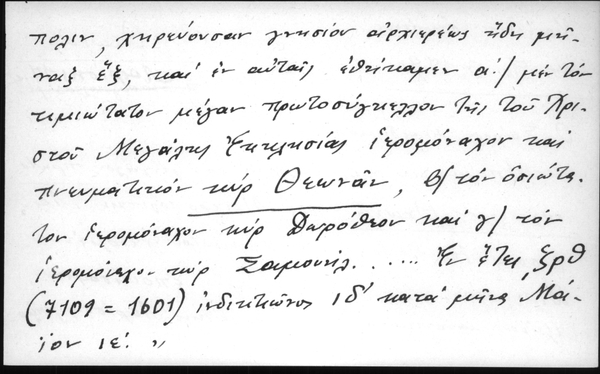 πολιν, χηρεύουσαν γνησίου ἀρχιερέως ἤδη μῆ-
νας ἕξ, καί ἐν αὐταῖς ἐθήκαμεν α΄/ μέν τόν
τιμιώτατον μέγαν πρωτοσύγκελλον τῆς τοῦ Χρι-
στοῦ Μεγάλης Ἐκκλησίας ἱερομόναχον καί
πνευματικόν κύρ Θεωνᾶν, β/ τόν ὁσιώτα-
τον ἱερομόναχον κύρ Δωρόθεον καί γ/ τόν
ἱερομόναχον κύρ Σαμουήλ. . ... Ἐν ἔτει ͵ζρθ
(7109 = 1601) ἰνδικτιῶνος ιδ΄ κατά μῆνα Μά-
ϊον ιε΄. „